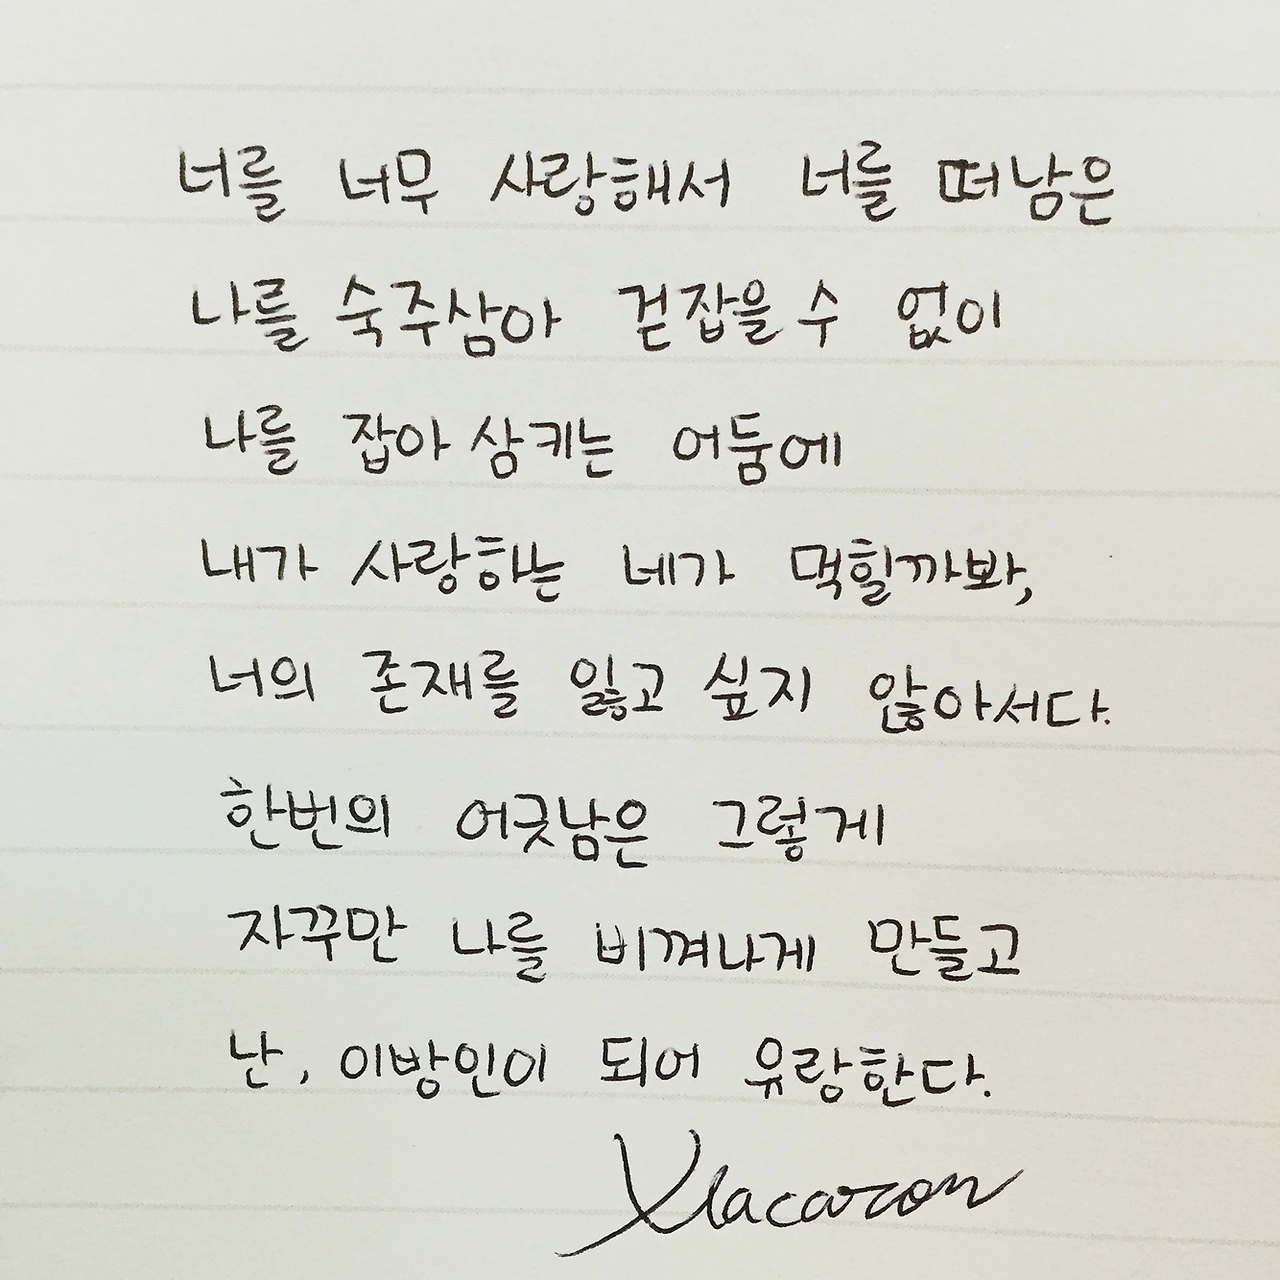 너를 너무 사랑해서 너를 떠남은
나를 숙주삼아 걷잡을 수 없이
나를 잡아 삼키는 어둠에
내가 사랑하는 네가 먹힐까봐,
너의 존재를 잃고 싶지 않아서다.
한번의 어긋남은 그렇게
자꾸만 나를 비껴나게 만들고
난, 이방인이 되어 유랑한다.